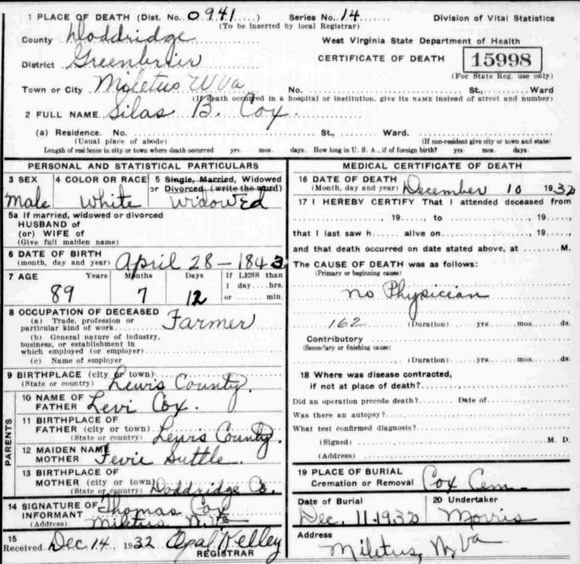 1 PLACE OF DEATH (Dist. No. 0941) Series No. 14 Division of Vital Statistics
(To be inserted by local Registrar)
County Doddridge West Virginia State Department of Health
District Greenbrier CERTIFICATE OF DEATH 15998
(For State Reg. use only)
Town or City Miletus W Va No. St., Ward
(If death occurred in a hospital or institution, give its NAME instead of street and number)
2 FULL NAME Silas B. Cox.
(a) Residence. No. St., Ward
(Usual place of abode) (If non-resident give city or town and state)
Length of residence in city or town where death occurred yrs. mos. days. How long in U. S. A., if of foreign birth? yrs. mos. days
PERSONAL AND STATISTICAL PARTICULARS
3 SEX 4 COLOR OR RACE 5 Single, Married, Widowed
or Divorced (write the word)
Male White Widowed
5a If married, widowed or divorced
HUSBAND of
(or) WIFE of
(Give full maiden name)
6 DATE OF BIRTH
(month, day and year) April 28-1843
7 AGE Years Months Days If LESS than
1 day....hrs.
or ......min.
89 7 12
8 OCCUPATION OF DECEASED
(a) Trade, profession or
particular kind of work Farmer
(b) General nature of industry,
business, or establishment in
which employed (or employer)
(c) Name of employer
9 BIRTHPLACE (city or town)
(State or country) Lewis County.
PARENTS
10 NAME OF
FATHER Levi Cox.
11 BIRTHPLACE OF
FATHER (city or town)
(State or country) Lewis County.
12 MAIDEN NAME
MOTHER Fevie Suttle.
13 BIRTHPLACE OF
MOTHER (city or town)
(State or country) Doddridge Co.
14 SIGNATURE OF
INFORMANT Thomas Cox
(Address) Miletus W. Va
15
Received Dec 14, 1932 Opal Kelley
REGISTRAR
MEDICAL CERTIFICATE OF DEATH
16 DATE OF DEATH
(Month, day and year) December 10 1932
17 I HEREBY CERTIFY That I attended deceased from
19...., to 19....,
that I last saw h alive on 19....,
and that death occurred on date stated above, at M.
The CAUSE OF DEATH was as follows:
(Primary or beginning cause)
no Physician
162 (Duration) yrs. mos. ds.
Contributory
(Secondary or finishing cause)
(Duration) yrs. mos. ds.
18 Where was disease contracted,
if not at place of death?
Did an operation precede death? Date of
Was there an autopsy?
What test confirmed diagnosis?
(Signed) M. D.
(Address)
19 PLACE OF BURIAL
Cremation or Removal Cox Cem.
Date of Burial 20 Undertaker
Dec. 11-1932 Morris
Address
Miletus, W, Va